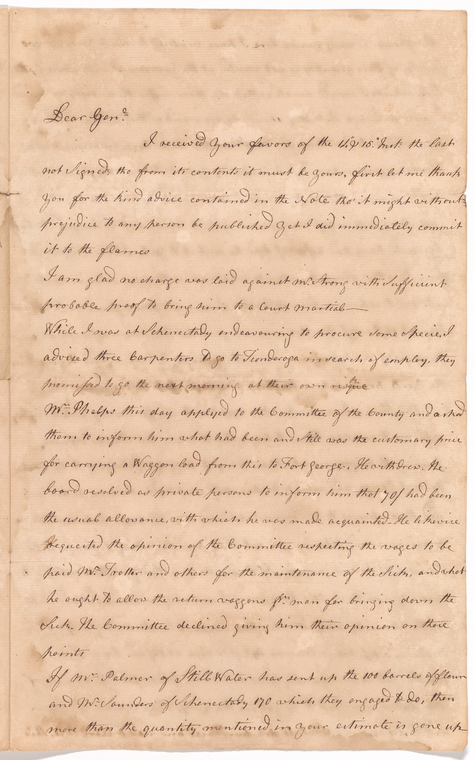 Dear Gen.l
I received your favors of the 14 & 15 Inst the last
not signed, tho from its contents it must be yours, first let me thank
you for the kind advice contained in the Note tho' it might without
prejudice to any person be published yet I did immediately commit
it to the flames
I am glad no charge was laid against Mr. Strong with sufficient
probable proof to bring him to a Court martial—
While I was at Schenectady endeavouring to procure some Specie I
advised three Carpenters to go to Ticonderoga in search of employ, they
promised to go the next morning at their own
Mr. Phelps this day applyed to the Committee of the County and asked
them to inform him what had been and still was the customary price
for carrying a Waggon load from this to Fort George. He withdrew. the
board resolved as private persons to inform him that 70/ had been
the usual allowance, with which he was made acquainted. He likewise
requested the opinion of the Committee respecting the wages to be
paid Mr. Trotter and others for the maintenance of the Sick, and what
he ought to allow the return waggons pr. man for bringing down the
Sick. The Committee declined giving him their opinion on those
points
If Mr. Palmer of Still Water has sent up the 100 barrels of flour
and Mr. Saunders of Schenectady 170 which they engaged to do, then
more than the quantity mentioned in your estimate is gone up—